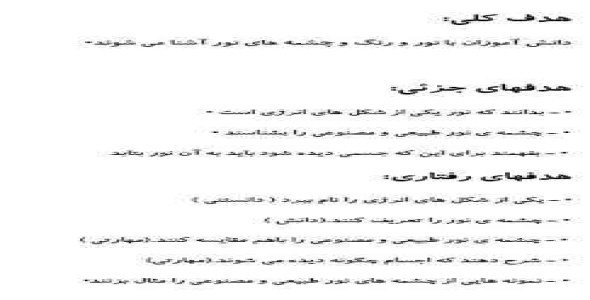 هدف کلی:
دانش آموزان با نور و رنگ و چشمه های نور آشنا می شوند•
هدفهای جزئی:
• – بدانند که نور یکی از شکل های انرژی است •
• – چشمه ی نور طبیعی و مصنوعی را بشناسند •
• – بفهمند برای این که جسمی دیده شود باید به آن نور بتابد
هدفهای رفتاری:
• – یکی از شکل های انرژی را نام ببرد ( دانستنی )
• – چشمه ی نور را تعریف کنند.(دانش )
• – چشمه ی نور طبیعی و مصنوعی را باهم مقایسه کنند.(مهارتی )
• – شرح دهند که اجسام چگونه دیده می شوند.(مهارتی)
• – نمونه هایی از چشمه های نور طبیعی و مصنوعی را مثال بزنند•